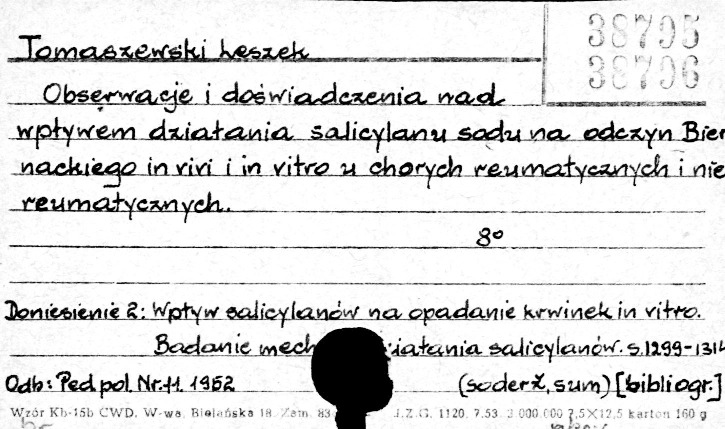 38795
38796
Tomaszewski Leszek
Obserwacje i doświadczenia nad
wpływem działania salicylanu sodu na odczyn Bier
nackiego in vivi i in vitro u chorych reumatycznych i nie
reumatycznych.
8°
Doniesienie 2: Wpływ salicylanów na opadanie krwinek in vitro.
Badanie mech działania salicylanów. s. 1299-1314
Odb: Ped. pol. Nr. 11. 1952 (soderż, sum) [bibliogr.]
Wzór Kb-15b CWD, W-wa, Bielańska 18. Zam. 83 J.Z.G. 1120. 7.53. 3.000.000 7,5×12,5 karton 160 g